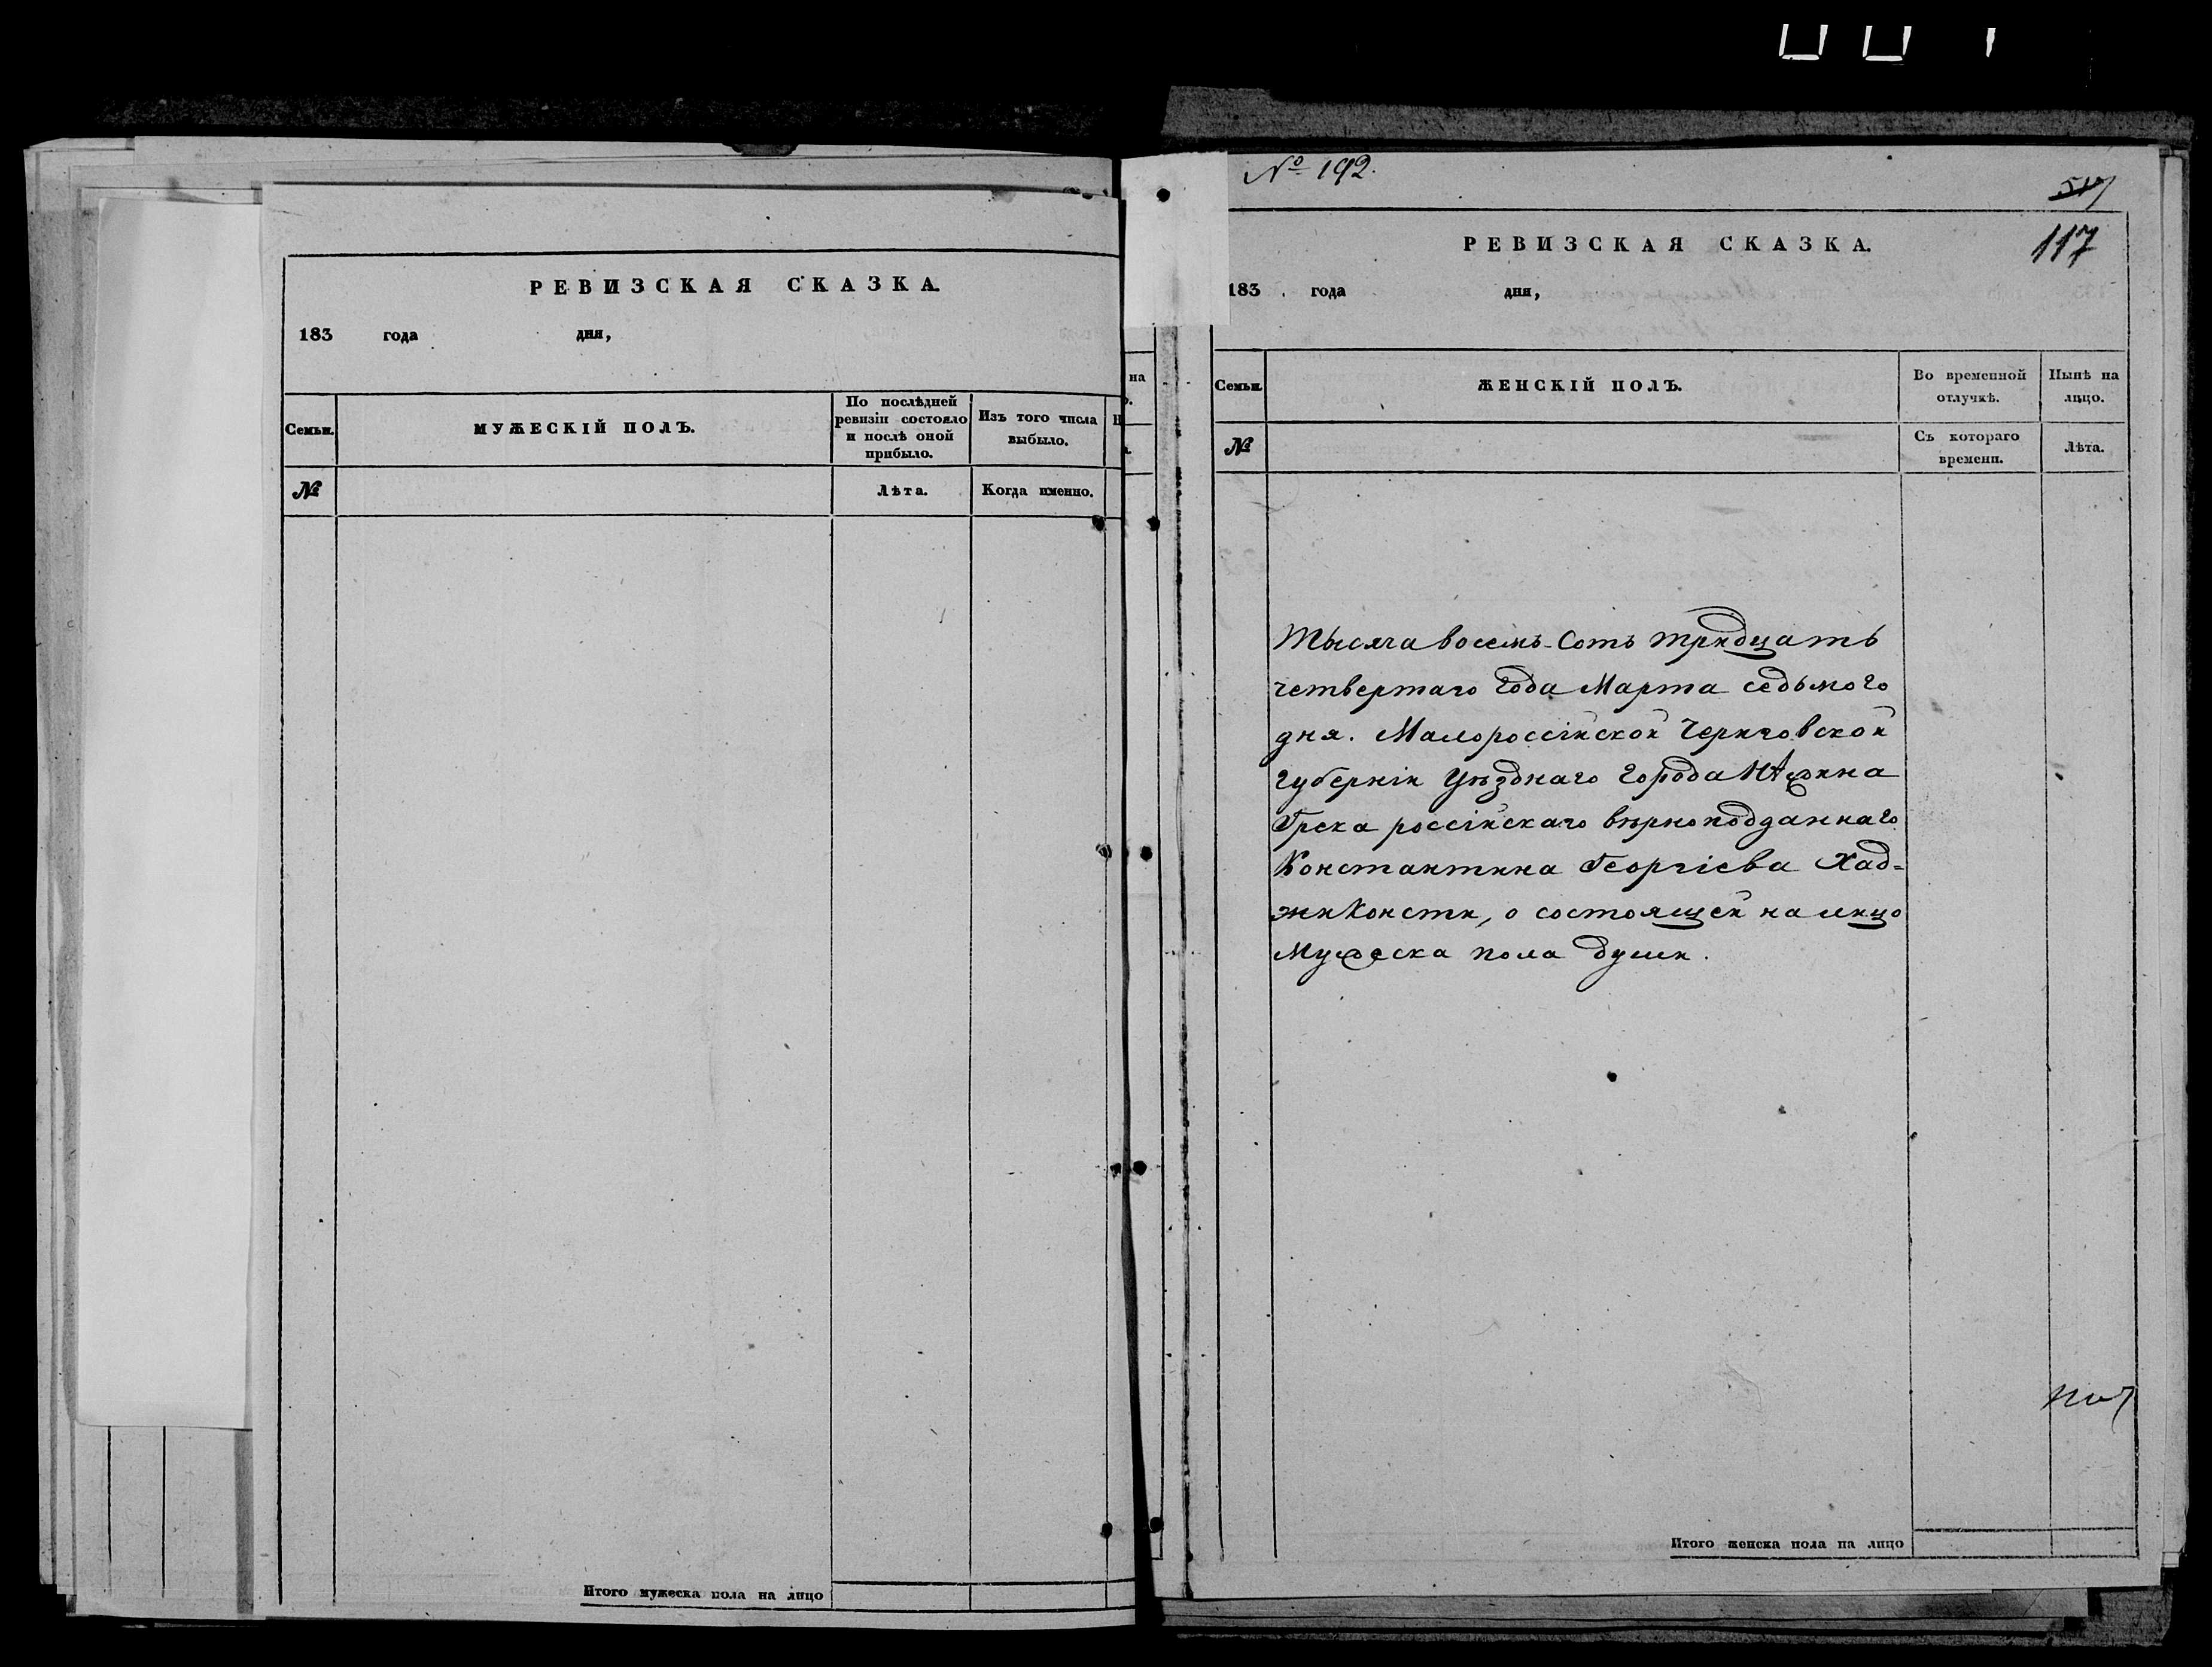 РЕВИЗСКАЯ СКАЗКА.
183 года дня,
Семьи.
МУЖЕСКІЙ ПОЛЪ.
По послѣдней
ревизіи состояло
и послѣ оной
прибыло.
Изъ того числа
выбыло.
№
Лѣта.
Когда именно.
Итого мужеска пола на лицо
на
№ 192.
517
РЕВИЗСКАЯ СКАЗКА.
117
183 года дня,
Семьи.
ЖЕНСКІЙ ПОЛЪ.
Во временной
отлучкѣ.
Нынѣ на
лицо.
№
Съ котораго
времени.
Лѣта.
Тысяча восемь-сотъ тридцать
четвертаго года Марта седьмого
дня. Малороссійской Черниговской
губерніи уѣзднаго города Нѣжина
Грека россійскаго вѣрноподданнаго
Константина Георгіева Хад-
жиКонсти, о состоящей на лицо
Мужеска пола души.
Итого женска пола на лицо